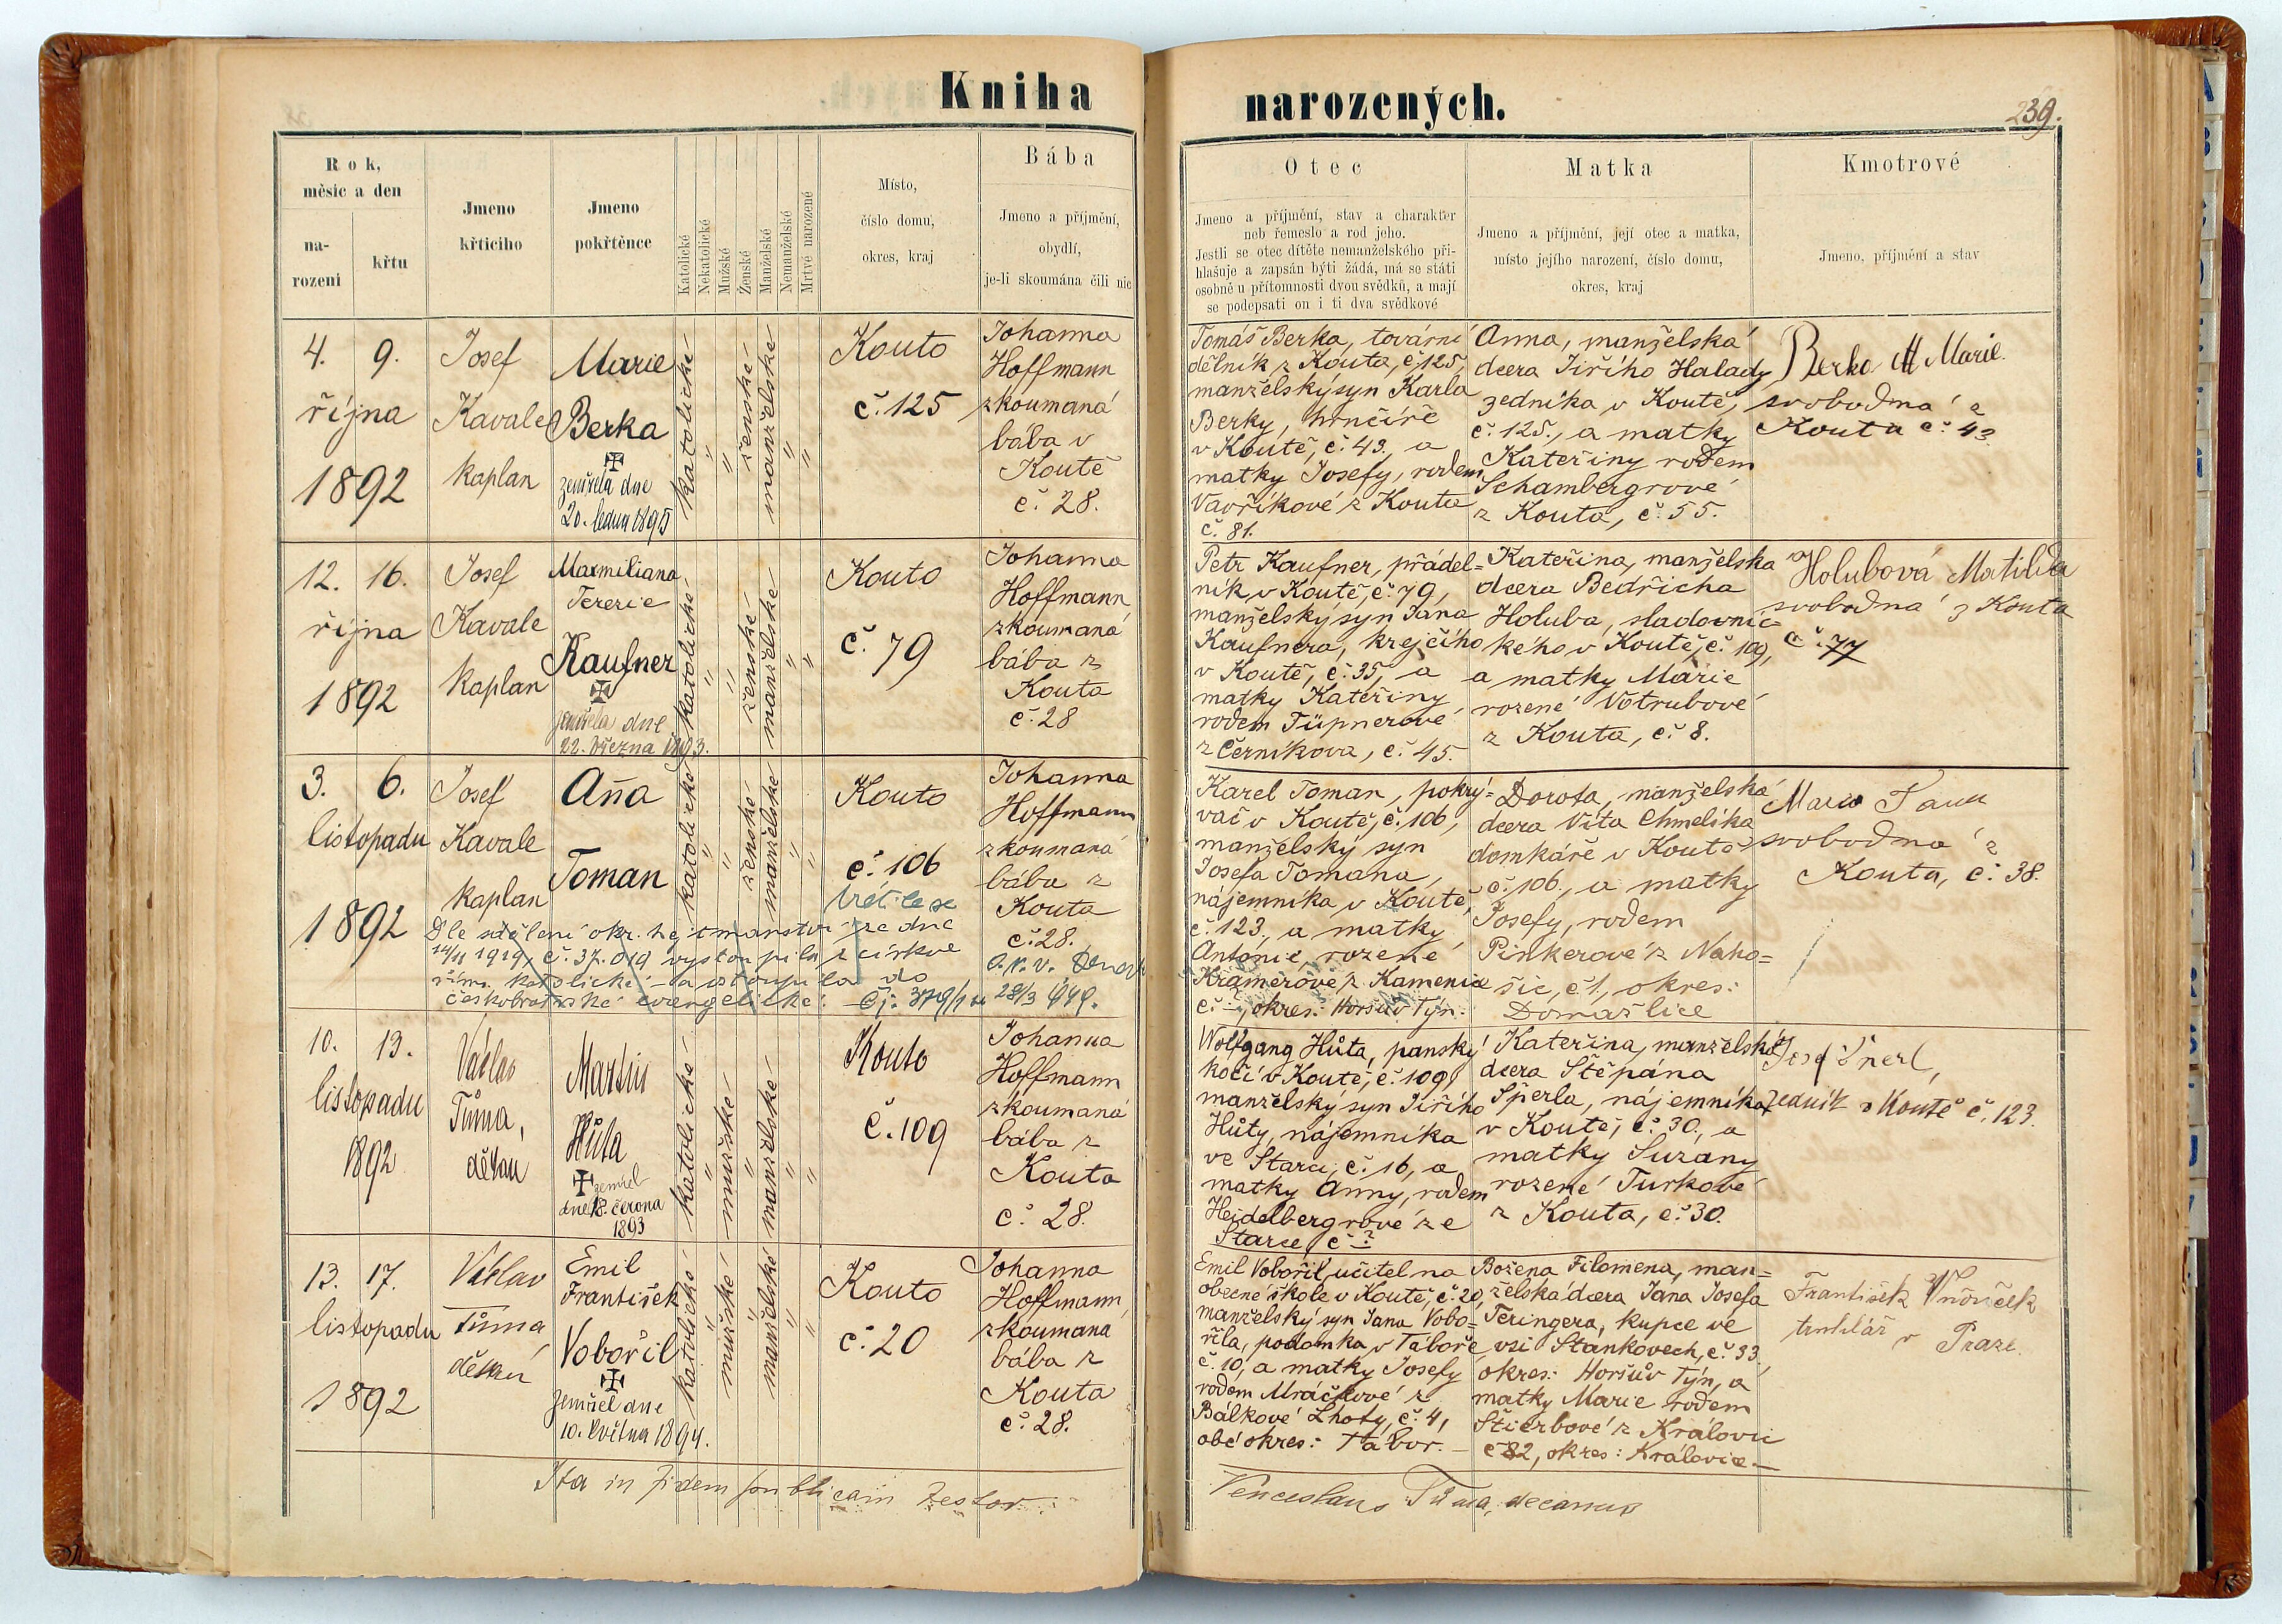 Kniha
narozených.
239.
Rok,
měsíc a den
na-
rozeni
křtu
Jmeno
křticího
Jmeno
pokřtěnce
Katolické
Nekatolické
Mužské
Ženské
Manželské
Nemanželské
Mrtvě narozené
Místo,
číslo domu,
okres, kraj
Bába
Jmeno a příjmění,
obydlí,
je-li skoumána čili nic
Otec
Jmeno a příjmění, stav a charakter
neb řemeslo a rod jeho.
Jestli se otec dítěte nemanželského při-
hlašuje a zapsán býti žádá, má se státi
osobně u přítomnosti dvou svědků, a mají
se podepsati on i ti dva svědkové
Matka
Jmeno a příjmění, její otec a matka,
místo jejího narození, číslo domu,
okres, kraj
Kmotrové
Jmeno, příjmění a stav
4. 9.
října
1892
Josef
Kavale
kaplan
Marie
Berka
zemřela dne
20. ledna 1895
katolické
"
"
ženské
manželské
"
"
Kouto
č. 125
Johanna
Hoffmann
zkoumaná
bába v
Koutě
č. 28.
Tomáš Berka, tovární
dělník z Kouta, č. 125,
manželský syn Karla
Berky, hrnčíře
v Koutě, č. 43, a
matky Josefy, rodem
Vavříkové z Kouta
č. 81.
Anna, manželská
dcera Jiřího Halady,
zedníka v Koutě,
č. 125., a matky
Kateřiny rodem
Schambergrové
z Kouta, č. 55.
Berka Marie.
svobodná z
Kouta č. 43
12. 16.
října
1892
Josef
Kavale
kaplan
Maxmiliana
Terezie
Kaufner
zemřela dne
22. března 1893.
katolické
"
"
ženské
manželské
"
"
Kouto
č. 79
Johanna
Hoffmann
zkoumaná
bába z
Kouta
č. 28
Petr Kaufner, přádel=
ník v Koutě, č. 79,
manželský syn Jana
Kaufnera, krejčího
v Koutě, č. 35, a
matky Kateřiny
rodem Tüpnerové
z Černíkova, č. 45.
Kateřina, manželská
dcera Bedřicha
Holuba, sladovnic=
kého v Koutě, č. 109,
a matky Marie
rozené Votrubové
z Kouta, č. 8.
Holubová Matilda
svobodná z Kouta
č. 77
3. 6.
listopadu
1892
Josef
Kavale
kaplan
Anna
Toman
katolické
"
"
ženské
manželské
"
"
Kouto
č. 106
Johanna
Hoffmann
zkoumaná
bába z
Kouta
č. 28.
vrátila se
Dle sdělení okr. hejtmanství ze dne
14/11 1919, č. 37.019 vystoupila z církve
říms. katolické a vstoupila do
českobratrské evangelické.
Karel Toman, pokrý=
vač v Koutě, č. 106,
manželský syn
Josefa Tomana,
nájemníka v Koutě,
č. 123., a matky
Antonie, rozené
Kramerové z Kamenice
č. –, okres: Horšův Týn.
Dorota, manželská
dcera Víta Chmelíka
domkáře v Koutě
č. 106., a matky
Josefy, rodem
Pinkerové z Naho=
šic, č. 1, okres:
Domažlice
svobodná z
Kouta, č. 38.
10. 13.
listopadu
1892
Václav
Tůma,
děkan
Martin
Hůta
zemřel
dne 18. června
1893
katolické
"
mužské
"
manželské
"
"
Kouto
č. 109
Johanna
Hoffmann
zkoumaná
bába z
Kouta
č. 28.
Wolfgang Hůta, panský
kočí v Koutě, č. 109,
manželský syn Jiřího
Hůty, nájemníka
ve Starci, č. 16, a
matky Anny, rodem
Heidelbergrové ze
Starce, č. ?
Kateřina, manželská
dcera Štěpána
Šperla, nájemníka
v Koutě, č. 30., a
matky Suzany
rozené Turkové
z Kouta, č. 30.
Josef Šperl,
zedník v Koutě č. 123.
13. 17.
listopadu
1892
Václav
Tůma,
děkan
Emil
František
Vobořil
zemřel dne
10. května 1894.
katolické
"
mužské
"
manželské
"
"
Kouto
č. 20
Johanna
Hoffmann,
zkoumaná
bába z
Kouta
č. 28.
Emil Vobořil, učitel na
obecné škole v Koutě, č. 20,
manželský syn Jana Vobo=
řila, podomka v Táboře,
č. 10, a matky Josefy
rodem Mráčkové z
Bálkové Lhoty, č. 4,
obé okres: Tábor. –
Božena Filomena, man=
želská dcera Jana Josefa
Teringera, kupce ve
vsi Staňkovech, č. 33,
okres: Horšův Týn, a
matky Marie rodem
Štierbové z Kralovic
č. 82, okres: Kralovice –
František
truhlář v Praze.
Ita in fidem publicam testor:
Venceslaus Tůma, decanus